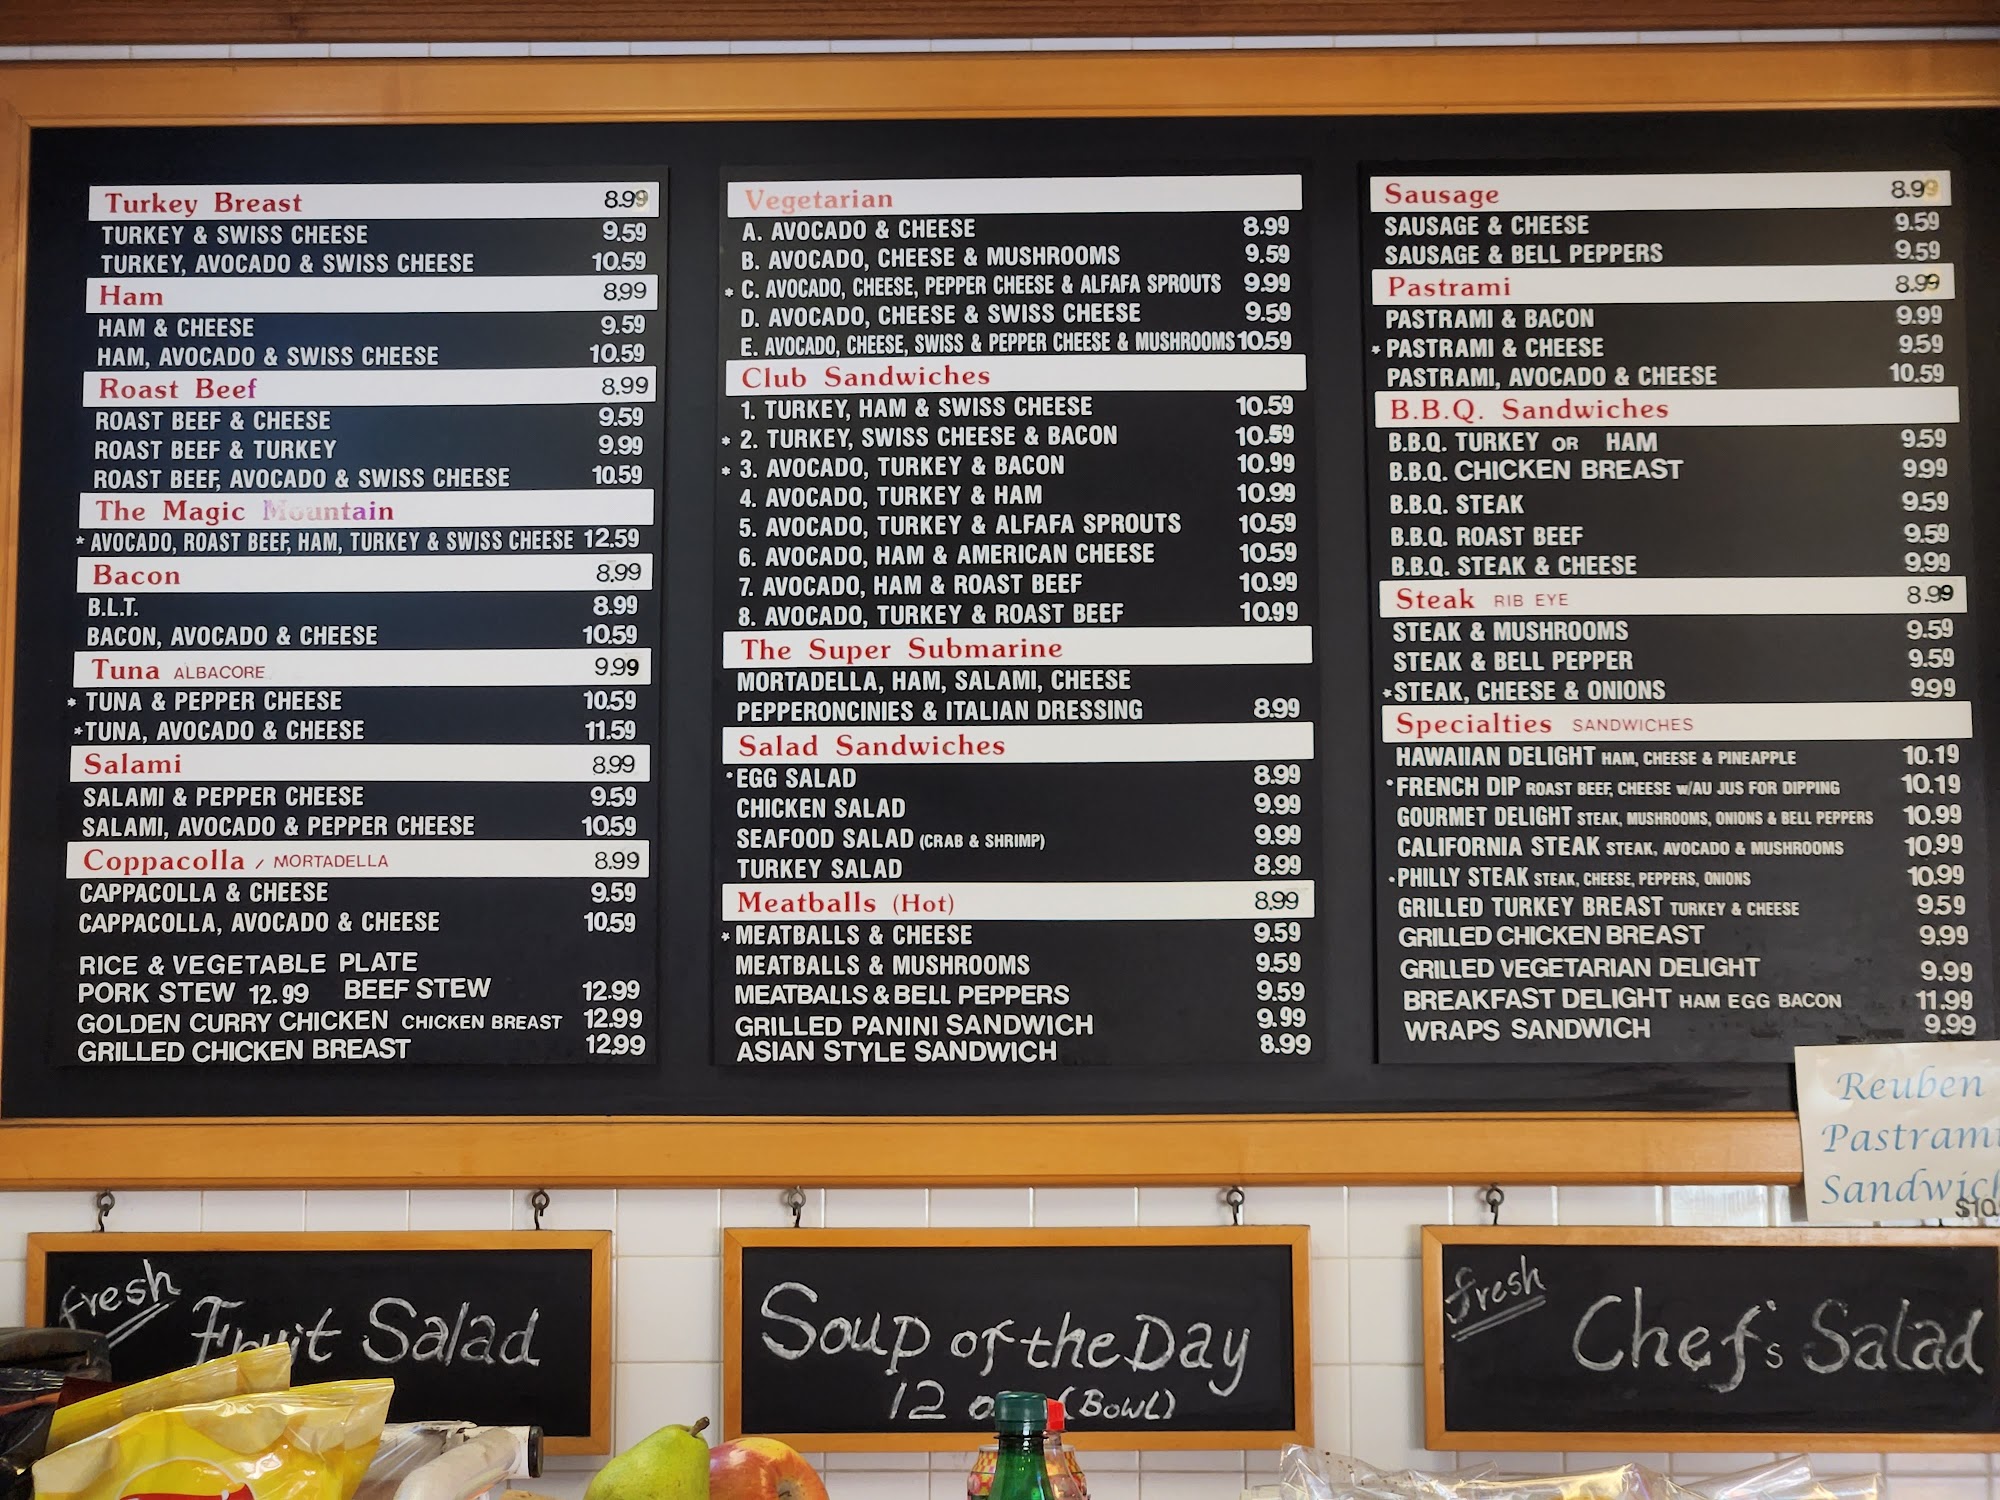 Turkey Breast 8.99
TURKEY & SWISS CHEESE 9.59
TURKEY, AVOCADO & SWISS CHEESE 10.59
Ham 8.99
HAM & CHEESE 9.59
HAM, AVOCADO & SWISS CHEESE 10.59
Roast Beef 8.99
ROAST BEEF & CHEESE 9.59
ROAST BEEF & TURKEY 9.99
ROAST BEEF, AVOCADO & SWISS CHEESE 10.59
The Magic Mountain
* AVOCADO, ROAST BEEF, HAM, TURKEY & SWISS CHEESE 12.59
Bacon 8.99
B.L.T. 8.99
BACON, AVOCADO & CHEESE 10.59
Tuna ALBACORE 9.99
* TUNA & PEPPER CHEESE 10.59
* TUNA, AVOCADO & CHEESE 11.59
Salami 8.99
SALAMI & PEPPER CHEESE 9.59
SALAMI, AVOCADO & PEPPER CHEESE 10.59
Coppacolla / MORTADELLA 8.99
CAPPACOLLA & CHEESE 9.59
CAPPACOLLA, AVOCADO & CHEESE 10.59
RICE & VEGETABLE PLATE
PORK STEW 12.99 BEEF STEW 12.99
GOLDEN CURRY CHICKEN CHICKEN BREAST 12.99
GRILLED CHICKEN BREAST 12.99
Vegetarian
A. AVOCADO & CHEESE 8.99
B. AVOCADO, CHEESE & MUSHROOMS 9.59
* C. AVOCADO, CHEESE, PEPPER CHEESE & ALFAFA SPROUTS 9.99
D. AVOCADO, CHEESE & SWISS CHEESE 9.59
E. AVOCADO, CHEESE, SWISS & PEPPER CHEESE & MUSHROOMS 10.59
Club Sandwiches
1. TURKEY, HAM & SWISS CHEESE 10.59
* 2. TURKEY, SWISS CHEESE & BACON 10.59
* 3. AVOCADO, TURKEY & BACON 10.99
4. AVOCADO, TURKEY & HAM 10.99
5. AVOCADO, TURKEY & ALFAFA SPROUTS 10.59
6. AVOCADO, HAM & AMERICAN CHEESE 10.59
7. AVOCADO, HAM & ROAST BEEF 10.99
8. AVOCADO, TURKEY & ROAST BEEF 10.99
The Super Submarine
MORTADELLA, HAM, SALAMI, CHEESE
PEPPERONCINIES & ITALIAN DRESSING 8.99
Salad Sandwiches
* EGG SALAD 8.99
CHICKEN SALAD 9.99
SEAFOOD SALAD (CRAB & SHRIMP) 9.99
TURKEY SALAD 8.99
Meatballs (Hot) 8.99
* MEATBALLS & CHEESE 9.59
MEATBALLS & MUSHROOMS 9.59
MEATBALLS & BELL PEPPERS 9.59
GRILLED PANINI SANDWICH 9.99
ASIAN STYLE SANDWICH 8.99
Sausage 8.99
SAUSAGE & CHEESE 9.59
SAUSAGE & BELL PEPPERS 9.59
Pastrami 8.99
PASTRAMI & BACON 9.99
* PASTRAMI & CHEESE 9.59
PASTRAMI, AVOCADO & CHEESE 10.59
B.B.Q. Sandwiches
B.B.Q. TURKEY OR HAM 9.59
B.B.Q. CHICKEN BREAST 9.99
B.B.Q. STEAK 9.59
B.B.Q. ROAST BEEF 9.59
B.B.Q. STEAK & CHEESE 9.99
Steak RIB EYE 8.99
STEAK & MUSHROOMS 9.59
STEAK & BELL PEPPER 9.59
* STEAK, CHEESE & ONIONS 9.99
Specialties SANDWICHES
HAWAIIAN DELIGHT HAM, CHEESE & PINEAPPLE 10.19
* FRENCH DIP ROAST BEEF, CHEESE w/AU JUS FOR DIPPING 10.19
GOURMET DELIGHT STEAK, MUSHROOMS, ONIONS & BELL PEPPERS 10.99
CALIFORNIA STEAK STEAK, AVOCADO & MUSHROOMS 10.99
* PHILLY STEAK STEAK, CHEESE, PEPPERS, ONIONS 10.99
GRILLED TURKEY BREAST TURKEY & CHEESE 9.59
GRILLED CHICKEN BREAST 9.99
GRILLED VEGETARIAN DELIGHT 9.99
BREAKFAST DELIGHT HAM EGG BACON 11.99
WRAPS SANDWICH 9.99
Reuben
Pastrami
Sandwich
fresh Fruit Salad
Soup of the Day
12 (BOWL)
fresh Chef's Salad